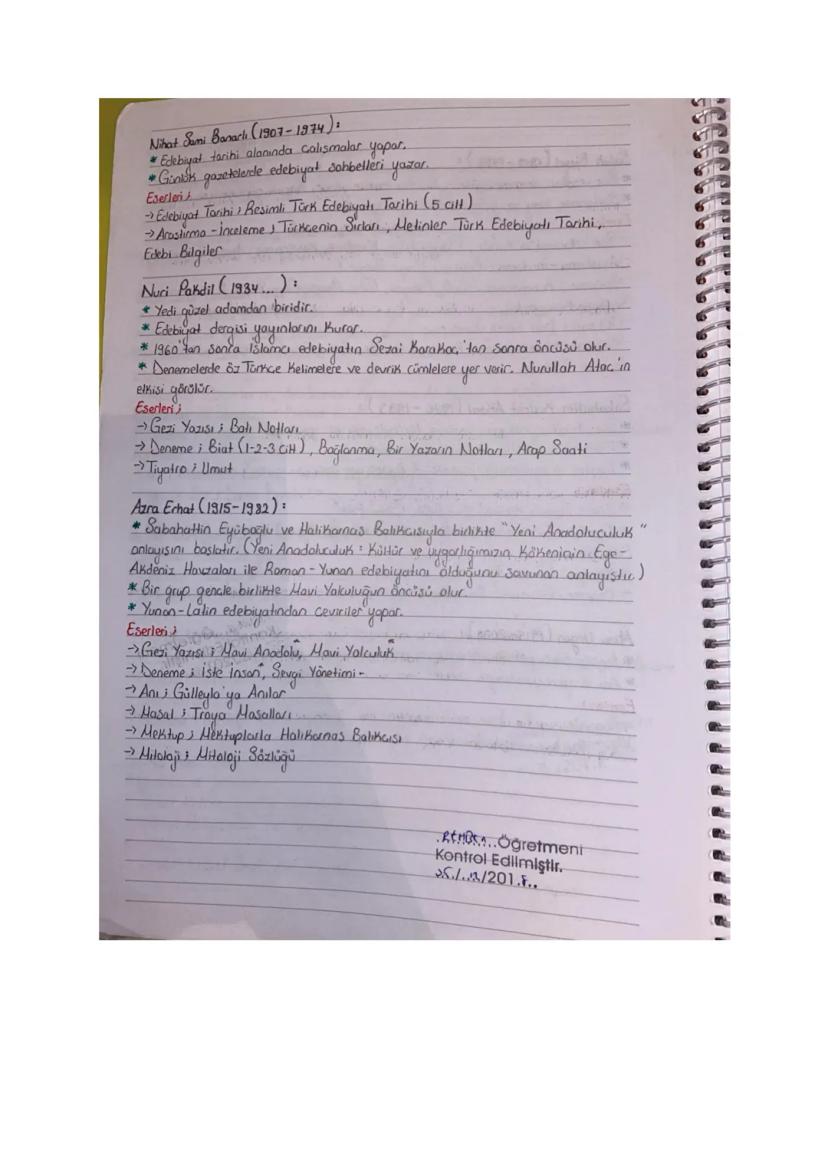 Nihat Sami Banarlı (1907-1974):
* Edebiyat tarihi alanında çalışmalar yapar.
* Günlük gazetelerde edebiyat sohbetleri yazar.
Eserleri;
→ Edebiyat Tarihi; Resimli Türk Edebiyatı Tarihi (5 cilt)
→ Araştırma-İnceleme; Türkçenin Sırları, Metinler Türk Edebiyatı Tarihi,
Edebi Bilgiler
Nuri Pakdil (1934...):
* Yedi güzel adamdan biridir.
* Edebiyat dergisi yayınlarını kurar.
* 1960'tan sonra İslamcı edebiyatın Sezai Karakoç'tan sonra öncüsü olur.
* Denemelerde öz Türkçe kelimelere ve devrik cümlelere yer verir. Nurullah Ataç'ın
etkisi görülür.
Eserleri;
→ Gezi Yazısı; Batı Notları
→ Deneme; Biat (1-2-3 cilt), Bağlanma, Bir Yazarın Notları, Arap Saati
→ Tiyatro; Umut
Azra Erhat (1915-1982):
* Sabahattin Eyüboğlu ve Halikarnas Balıkçısıyla birlikte "Yeni Anadoluculuk"
anlayışını başlatır. (Yeni Anadoluculuk: Kültür ve uygarlığımızın kökeninin Ege-
Akdeniz Havzaları ile Roman-Yunan edebiyatını olduğunu savunan anlayıştır.)
* Bir grup gençle birlikte Mavi Yolculuğun öncüsü olur.
* Yunan-Latin edebiyatından çeviriler yapar.
Eserleri;
→ Gezi Yazısı; Mavi Anadolu, Mavi Yolculuk
→ Deneme; İşte İnsan, Sevgi Yönetimi-
→ Anı; Gülleyla'ya Anılar
→ Masal; Troya Masalları
→ Mektup; Mektuplarla Halikarnas Balıkçısı
→ Mitoloji; Mitoloji Sözlüğü
Öğretmeni
Kontrol Edilmiştir.
/201